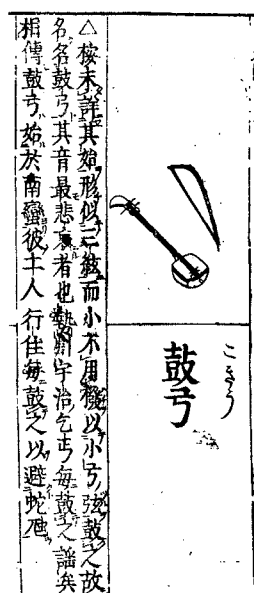 鼓弓
こきう
△按未詳其始形似三絃而小不用撥以小弓弦鼓之故
名名鼓弓其音最悲哀者也勢州宇治乞丐毎鼓之謡矣
相傳鼓弓始於南蠻彼土人行住毎鼓之以避蛇虺